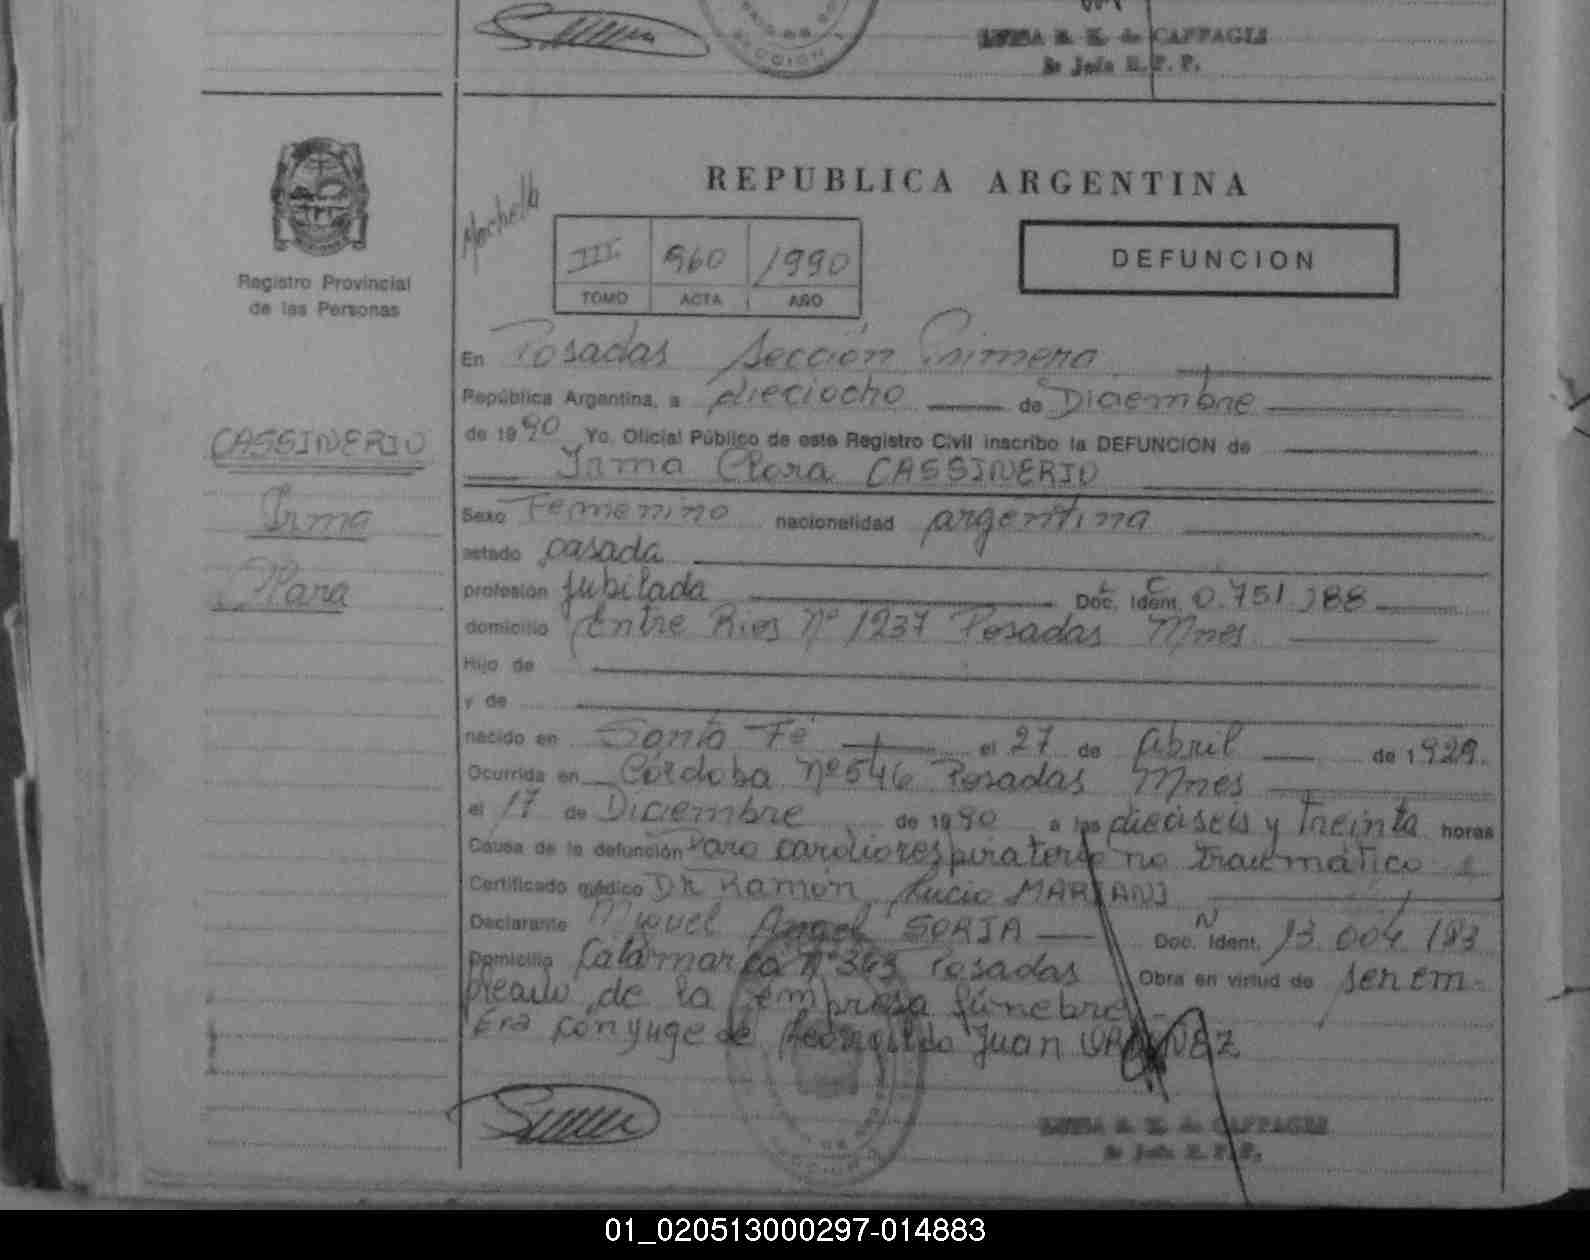 SECCION
CAFFAGIS
REPUBLICA ARGENTINA
III 960 1990
TOMO ACTA AÑO
DEFUNCION
Registro Provincial
de las Personas
CASSINERIO
Irma
Clara
En Posadas Sección Primera
República Argentina, a dieciocho de Diciembre
de 1990 Yo, Oficial Público de este Registro Civil inscribo la DEFUNCION de
Irma Clara CASSINERIO
Sexo Femenino nacionalidad argentina
estado casada
profesión jubilada Doc. Ident. L C 0.751.188
domicilio Entre Rios Nº 1237 Posadas Mnes
Hijo de
y de
nacido en Santa Fé el 27 de Abril de 1929.
Ocurrida en Córdoba Nº 546 Posadas Mnes
el 17 de Diciembre de 1990 a las dieciseis y Treinta horas
Causa de la defunción Paro cardiorespiratorio no traumático
Certificado médico Dr Ramón Lucio MARIANI
Declarante Miguel Angel SORIA Doc. N Ident. 13.004.183
Domicilio Catamarca Nº 363 Posadas Obra en virtud de ser em-
pleado de la empresa fúnebre
Era conyuge de Juan
CAFFAGIS
01_020513000297-014883